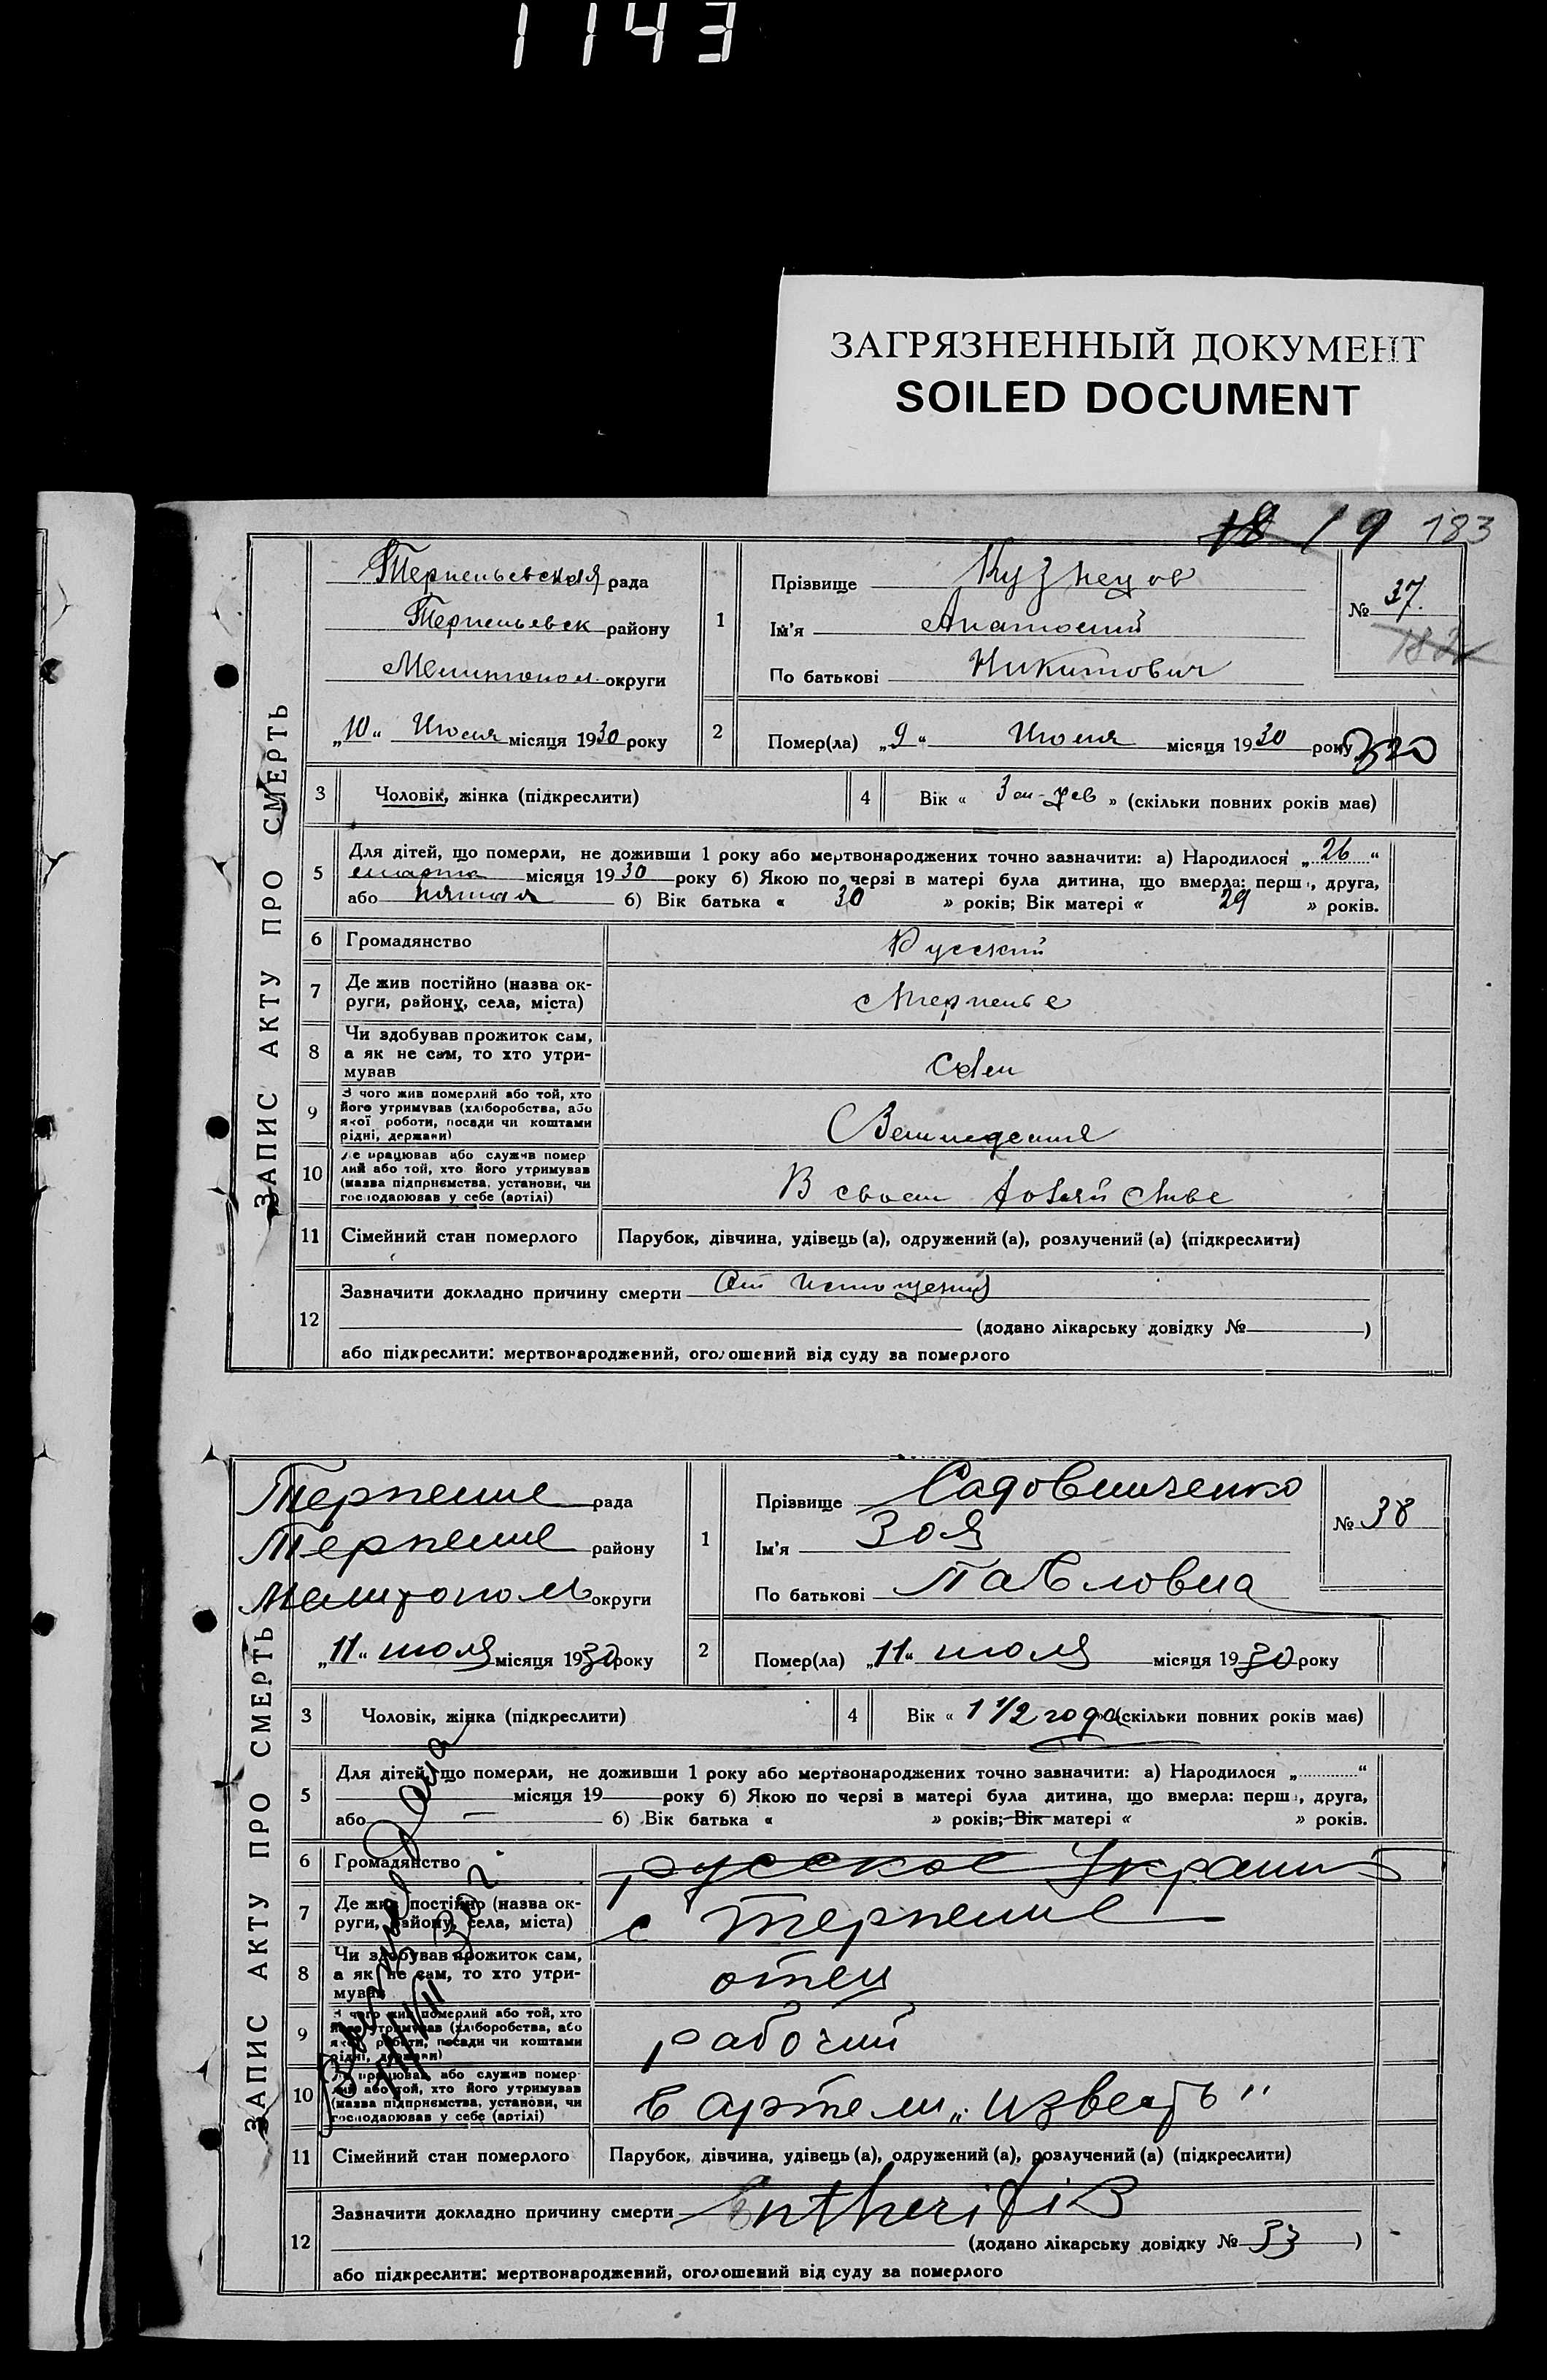 1143
ЗАГРЯЗНЕННЫЙ ДОКУМЕНТ
SOILED DOCUMENT
18 19 183
ЗАПИС АКТУ ПРО СМЕРТЬ
Терпеньевская рада
Терпеньевск району
Мелитопол. округи
„10“ Июля місяця 1930 року
1
Прізвище Кузнецов
Ім'я Анатолий
По батькові Никитович
№ 37.
182
2
Помер(ла) „9“ Июля місяця 1930 року
320
3 Чоловік, жінка (підкреслити)
4 Вік « 3 » (скільки повних років має)
5 Для дітей, що померли, не доживши 1 року або мертвонароджених точно зазначити: а) Народилося „26“
марта місяця 1930 року б) Якою по черзі в матері була дитина, що вмерла: перш, друга,
або пятая б) Вік батька « 30 » років; Вік матері « 29 » років.
6 Громадянство Русский
7 Де жив постійно (назва ок-
руги, району, села, міста) Терпенье
8 Чи здобував прожиток сам,
а як не сам, то хто утри-
мував
9 З чого жив померлий або той, хто
його утримував (хліборобства, або
якої роботи, посади чи коштами
рідні, держави)
10 Де працював або служив помер
лий або той, хто його утримував
(назва підприємства, установи, чи
господарював у себе (артілі) В своем
11 Сімейний стан померлого Парубок, дівчина, удівець (а), одружений (а), розлучений (а) (підкреслити)
12 Зазначити докладно причину смерти От истощения
(додано лікарську довідку № )
або підкреслити: мертвонароджений, оголошений від суду за померлого
ЗАПИС АКТУ ПРО СМЕРТЬ
Терпение рада
Терпение району
Мелитополь округи
„11“ июля місяця 1930 року
1
Прізвище
Ім'я Зоя
По батькові Павловна
№ 38
2
Помер(ла) „11“ июля місяця 1930 року
3 Чоловік, жінка (підкреслити)
4 Вік « 1 1/2 года (скільки повних років має)
5 Для дітей, що померли, не доживши 1 року або мертвонароджених точно зазначити: а) Народилося „ “
місяця 19 року б) Якою по черзі в матері була дитина, що вмерла: перш, друга,
або — б) Вік батька « » років; Вік матері « » років.
6 Громадянство русское
7 Де жив постійно (назва ок-
руги, району, села, міста) с Терпение
8 Чи здобував прожиток сам,
а як не сам, то хто утри-
мував отец
9 З чого жив померлий або той, хто
його утримував (хліборобства, або
якої роботи, посади чи коштами
рідні, держави) рабочий
10 Де працював або служив помер
лий або той, хто його утримував
(назва підприємства, установи, чи
господарював у себе (артілі) в артели „известь"
11 Сімейний стан померлого Парубок, дівчина, удівець (а), одружений (а), розлучений (а) (підкреслити)
12 Зазначити докладно причину смерти Entheritis
(додано лікарську довідку № 33 )
або підкреслити: мертвонароджений, оголошений від суду за померлого